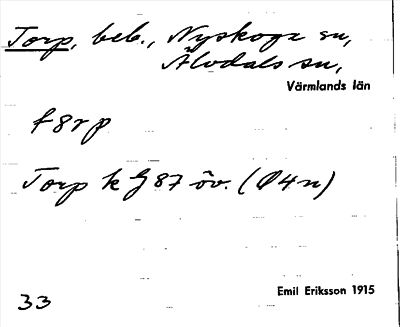 Torp, beb., Nyskoga sn,
Älvdals sn,
Värmlands län
f8rp
Torp k G87 öv. (Ø4n)
Emil Eriksson 1915
33